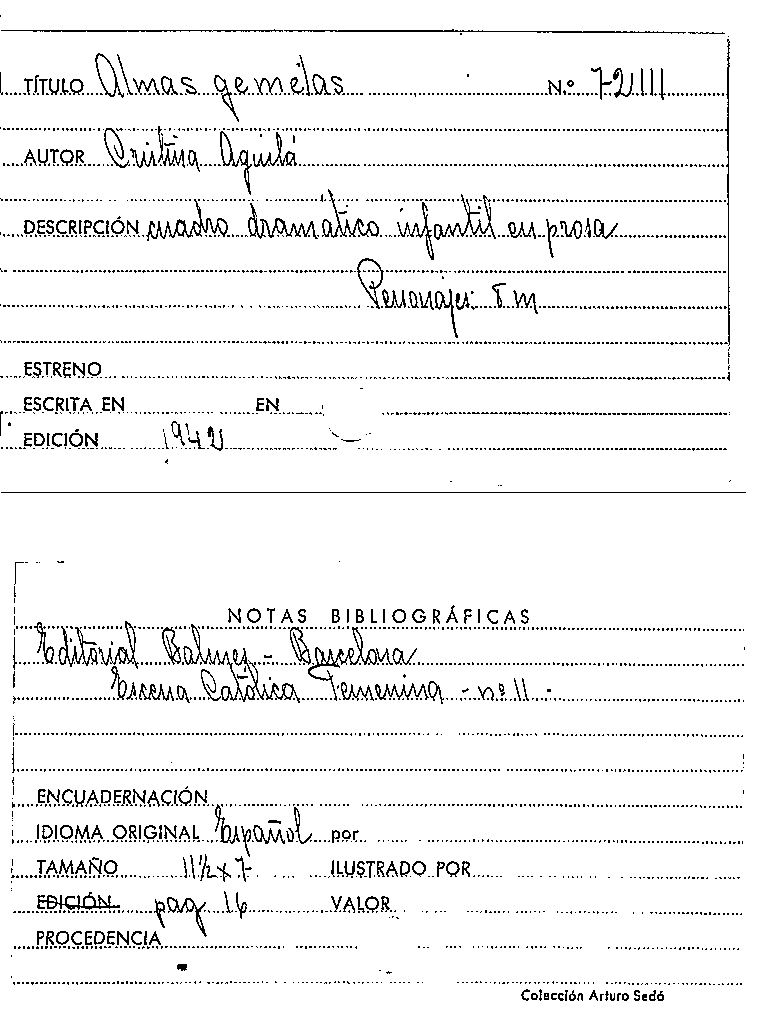 TÍTULO Almas gemelas N.º 72111
AUTOR Cristina Aguilá
DESCRIPCIÓN cuadro dramático infantil en prosa
Personajes: 8 m
ESTRENO
ESCRITA EN EN
EDICIÓN 1942
NOTAS BIBLIOGRÁFICAS
Editorial Balmes - Barcelona
Escena Católica Femenina - nº 11 -
ENCUADERNACIÓN
IDIOMA ORIGINAL Español por
TAMAÑO 11½ x 7 ILUSTRADO POR
EDICIÓN pag 16 VALOR
PROCEDENCIA
Colección Arturo Sedó